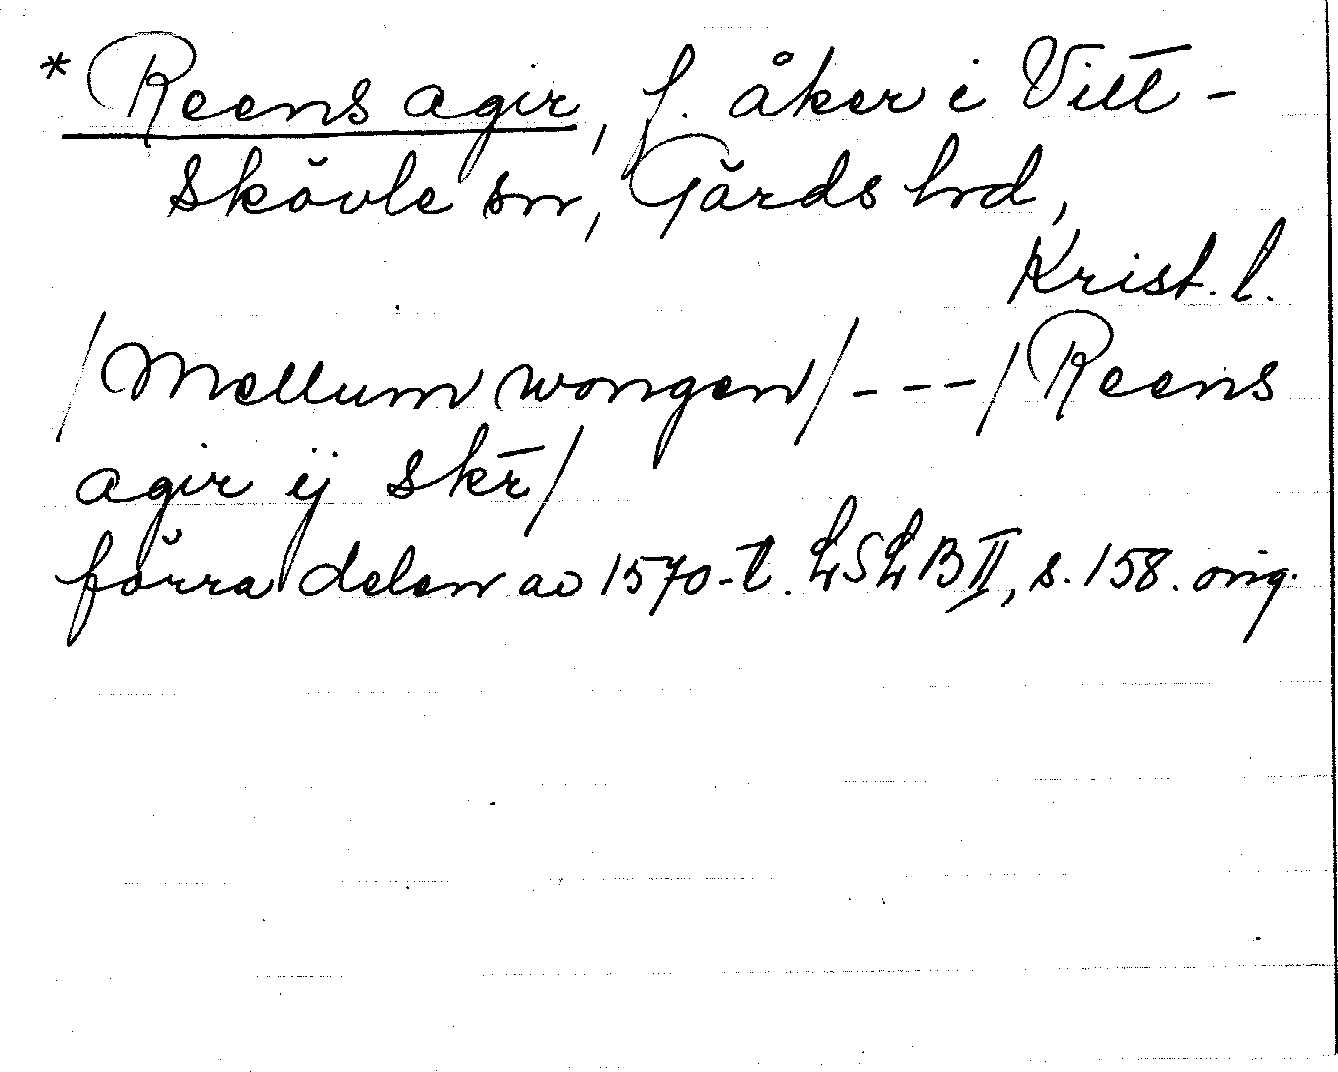 * Reens agir, f. åker i Vitt-
skövle sn, Gärds hrd,
Krist. l.
/Mellum wongen/---/Reens
agir ij skr̄/
förra delen av 1570-t. LSLB II, s. 158. orig.